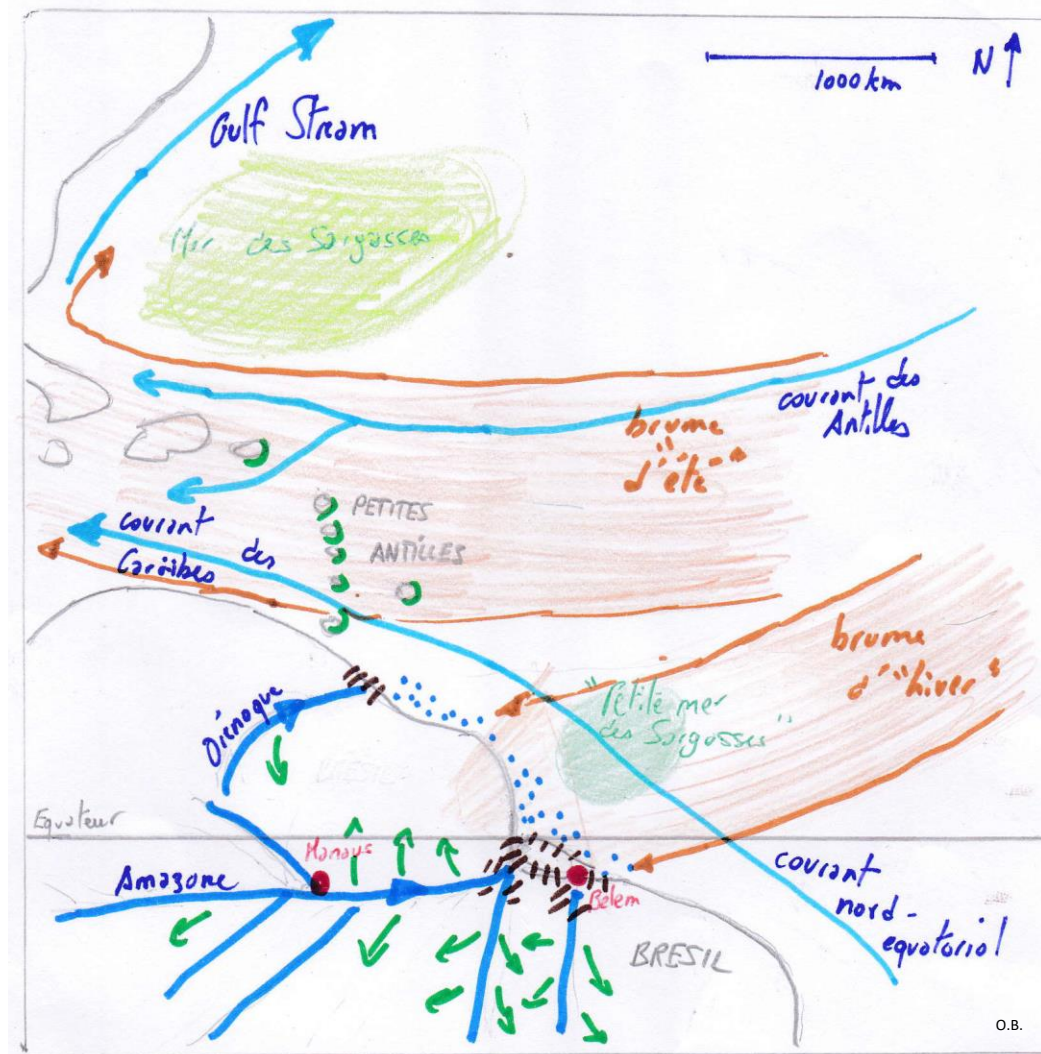 1000 km
N
Gulf Stream
Mer des Sargasses
courant des
Antilles
brume
"d'été"
PETITES
ANTILLES
courant des
Caraïbes
brume
d'"hiver"
"Petite mer
des Sargasses"
Orénoque
BRESIL
Equateur
Manaus
Amazone
Belem
BRESIL
courant
nord-
equatorial
O.B.